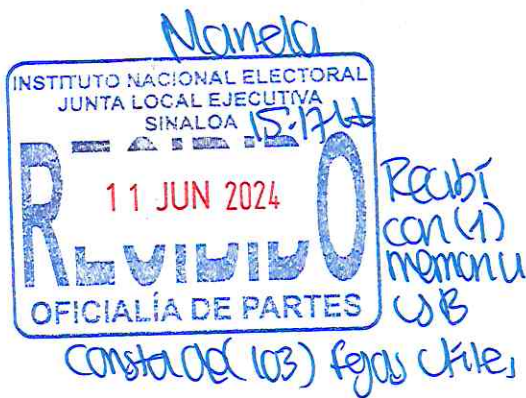 Manela
INSTITUTO NACIONAL ELECTORAL
JUNTA LOCAL EJECUTIVA
SINALOA 15:17
RECIBIDO
11 JUN 2024
OFICIALÍA DE PARTES
Recibí
con (1)
memoria
USB
Consta de (103) fojas útiles